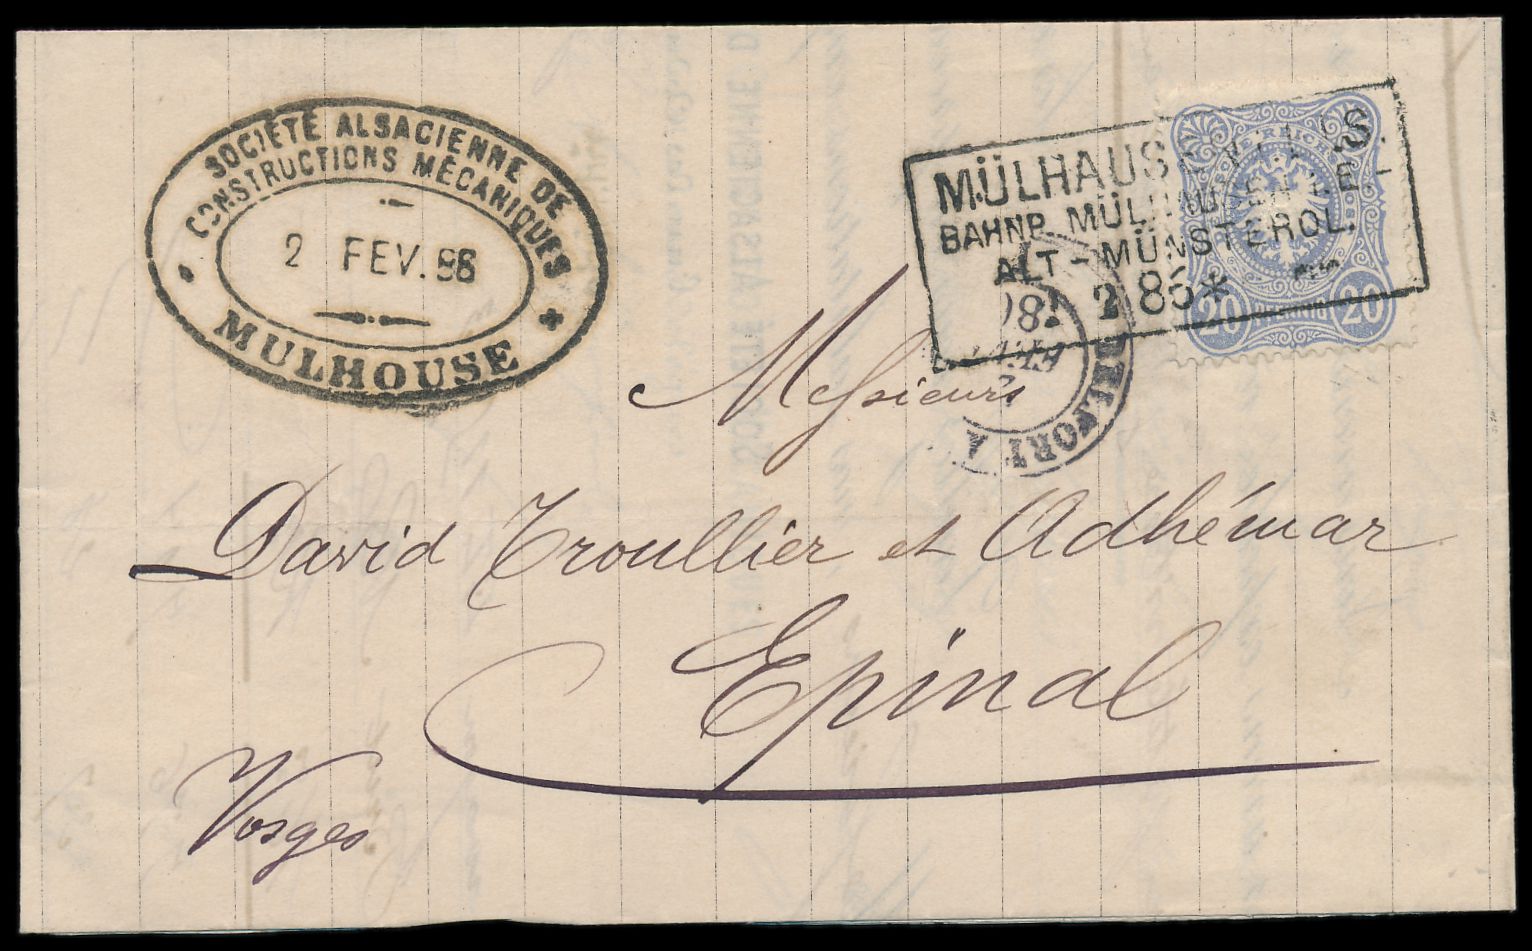 SOCIÉTÉ ALSACIENNE DE
CONSTRUCTIONS MÉCANIQUES
2 FEV. 86
MULHOUSE
MÜLHAUSEN i. ELS.
BAHNP. MÜLHAUSEN
ALT-MÜNSTEROL.
2 86*
REICHSPOST
20 PFENNIG 20
BELFORT A
Messieurs
David Troullier et Adhémar
Epinal
Vosges